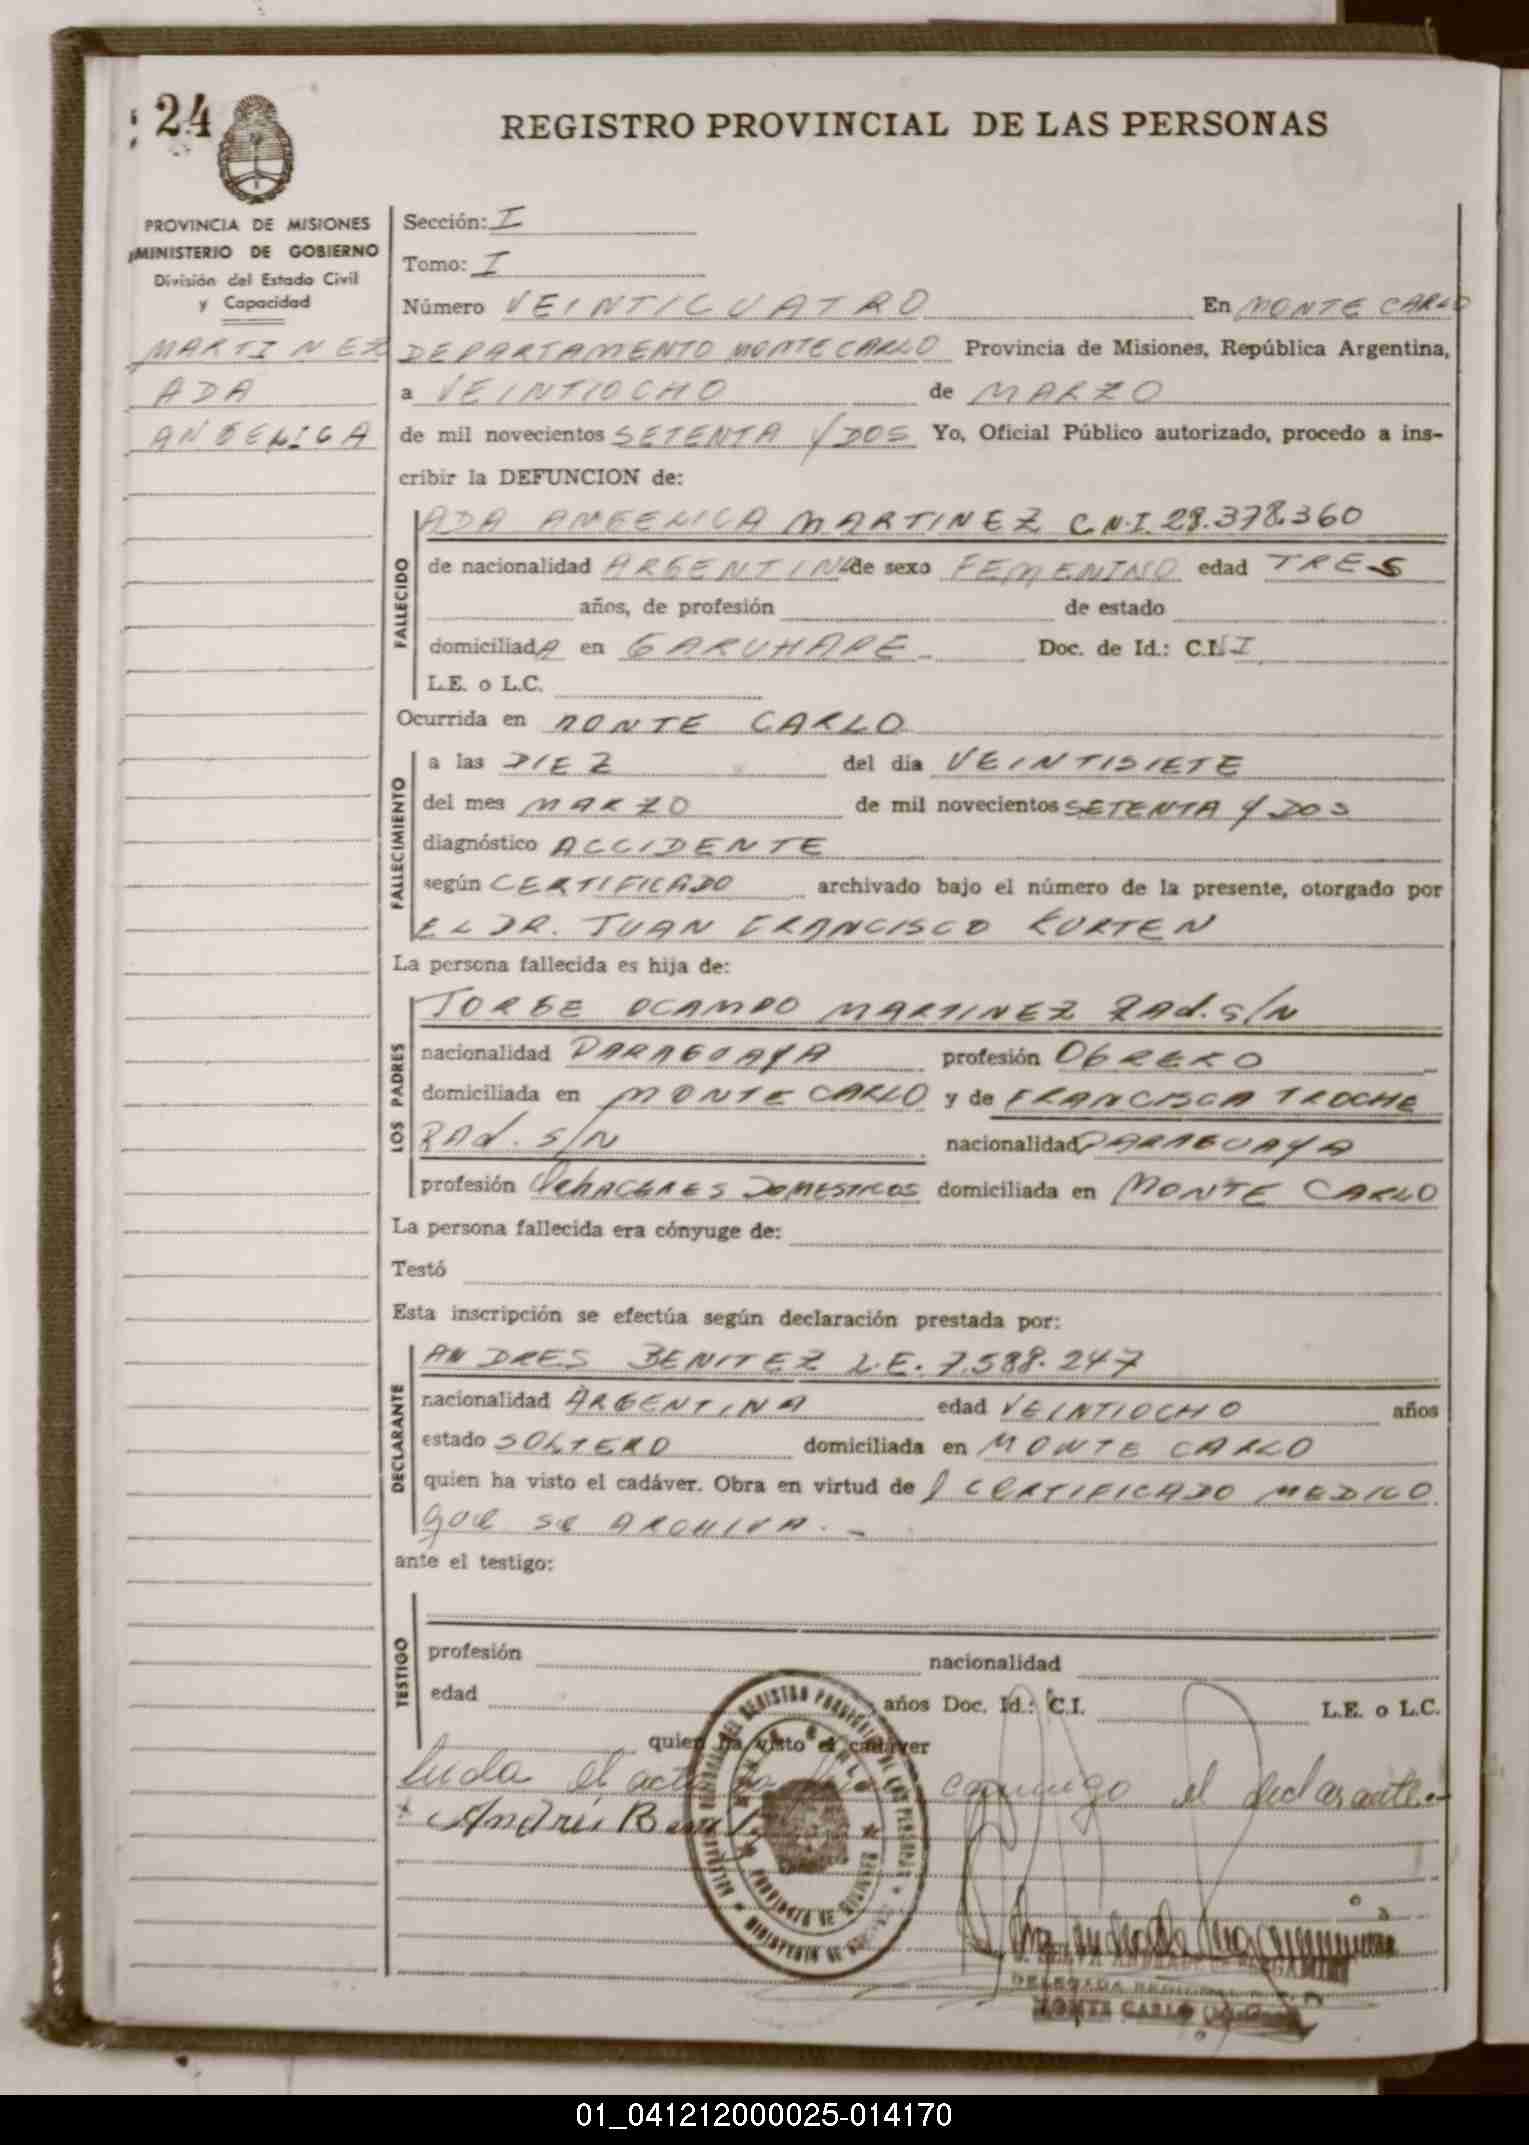 24
REGISTRO PROVINCIAL DE LAS PERSONAS
PROVINCIA DE MISIONES
MINISTERIO DE GOBIERNO
División del Estado Civil
y Capacidad
MARTINEZ
ADA
ANGELICA
Sección: I
Tomo: I
Número VEINTICUATRO En MONTE CARLO
DEPARTAMENTO MONTECARLO Provincia de Misiones, República Argentina,
a VEINTIOCHO de MARZO
de mil novecientos SETENTA Y DOS Yo, Oficial Público autorizado, procedo a ins-
cribir la DEFUNCION de:
FALLECIDO
ADA ANGELICA MARTINEZ C.N.I. 28.378.360
de nacionalidad ARGENTINA de sexo FEMENINO edad TRES
años, de profesión de estado
domiciliadA en GARUHAPE Doc. de Id.: C.NI
L.E. o L.C.
Ocurrida en MONTE CARLO
FALLECIMIENTO
a las DIEZ del día VEINTISIETE
del mes MARZO de mil novecientos SETENTA Y DOS
diagnóstico ACCIDENTE
según CERTIFICADO archivado bajo el número de la presente, otorgado por
EL DR. JUAN FRANCISCO KURTEN
La persona fallecida es hija de:
LOS PADRES
JORGE OCAMPO MARTINEZ RAd. S/N
nacionalidad PARAGUAYA profesión ObRERO
domiciliada en MONTE CARLO y de FRANCISCA TROCHE
RAd. S/N nacionalidad PARAGUAYA
profesión QehACERES DOMESTICOS domiciliada en MONTE CARLO
La persona fallecida era cónyuge de:
Testó
Esta inscripción se efectúa según declaración prestada por:
DECLARANTE
ANDRES BENITEZ L.E. 7.588.247
nacionalidad ARGENTINA edad VEINTIOCHO años
estado SOLTERO domiciliada en MONTE CARLO
quien ha visto el cadáver. Obra en virtud de l CERTIFICADO MEDICO
que se ARCHIVA.-
ante el testigo:
TESTIGO
profesión nacionalidad
edad años Doc. Id.: C.I. L.E. o L.C.
quien ha visto el cadáver
Leída el acta conmigo el declarante.-
Andrés
DELEGADA REGIONAL
MONTE CARLO
01_041212000025-014170